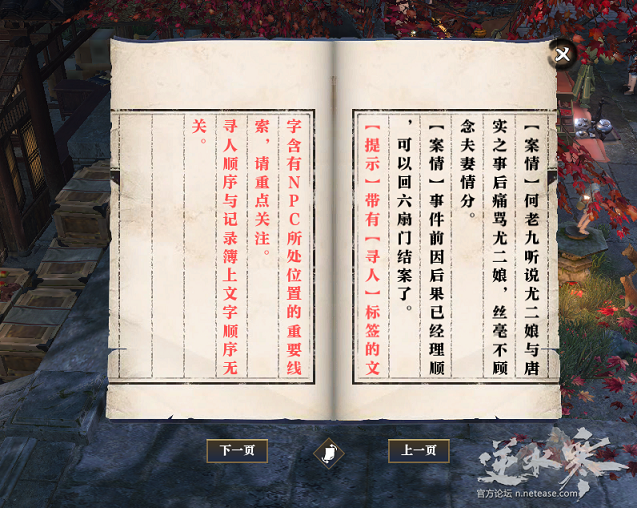 【案情】何老九听说尤二娘与唐
实之事后痛骂尤二娘，丝毫不顾
念夫妻情分。
【案情】事件前因后果已经理顺
，可以回六扇门结案了。
【提示】带有【寻人】标签的文
字含有NPC所处位置的重要线
索，请重点关注。
寻人顺序与记录簿上文字顺序无
关。
下一页
上一页
逆水寒
官方论坛 n.netease.com